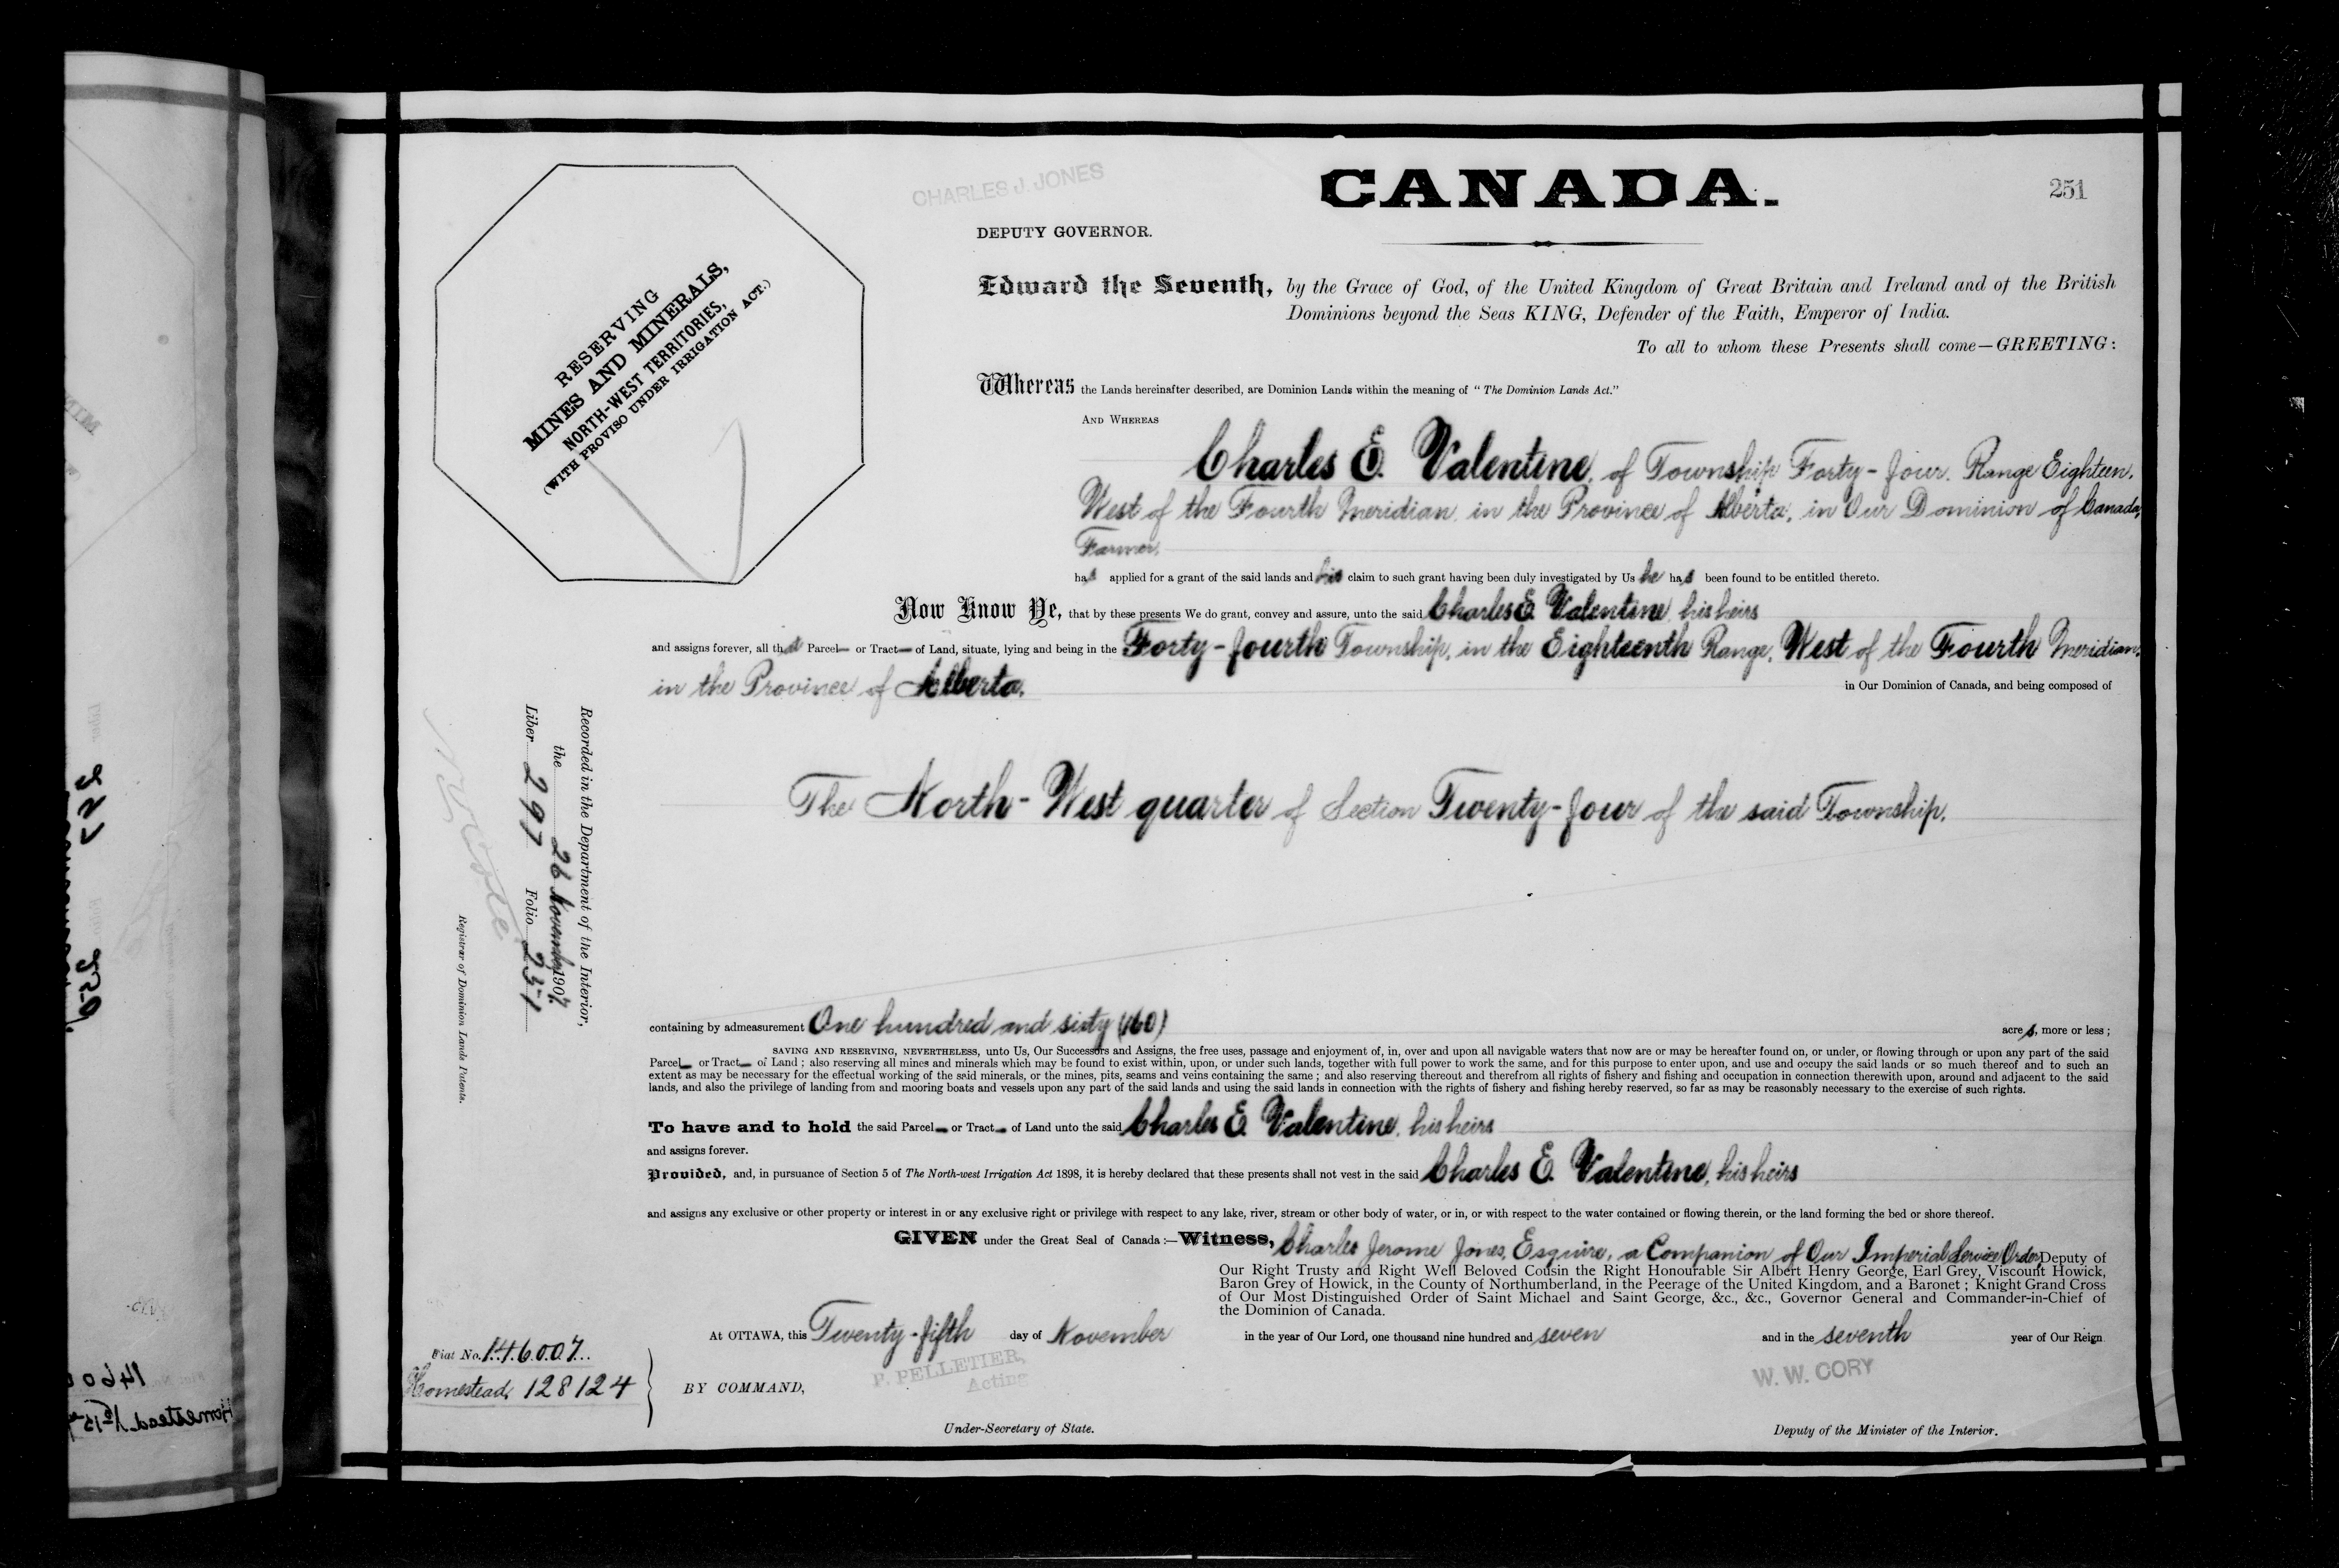 CHARLES J. JONES
CANADA.
251
DEPUTY GOVERNOR.
Edward the Seventh, by the Grace of God, of the United Kingdom of Great Britain and Ireland and of the British
Dominions beyond the Seas KING, Defender of the Faith, Emperor of India.
To all to whom these Presents shall come—GREETING:
RESERVING
MINES AND MINERALS,
NORTH-WEST TERRITORIES,
(WITH PROVISO UNDER IRRIGATION ACT.)
Whereas the Lands hereinafter described, are Dominion Lands within the meaning of "The Dominion Lands Act."
AND WHEREAS
Charles E. Valentine, of Township Forty-four, Range Eighteen,
West of the Fourth Meridian, in the Province of Alberta, in Our Dominion of Canada,
Farmer,
has applied for a grant of the said lands and his claim to such grant having been duly investigated by Us he has been found to be entitled thereto.
Now Know Ye, that by these presents We do grant, convey and assure, unto the said Charles E. Valentine, his heirs
and assigns forever, all that Parcel or Tract of Land, situate, lying and being in the Forty-fourth Township, in the Eighteenth Range, West of the Fourth Meridian,
in the Province of Alberta, in Our Dominion of Canada, and being composed of
The North-West quarter of Section Twenty-four of the said Township.
Recorded in the Department of the Interior,
the 26 November 1907.
Liber 297 Folio 251
Registrar of Dominion Lands Patents.
containing by admeasurement One hundred and sixty (160) acres, more or less;
SAVING AND RESERVING, NEVERTHELESS, unto Us, Our Successors and Assigns, the free uses, passage and enjoyment of, in, over and upon all navigable waters that now are or may be hereafter found on, or under, or flowing through or upon any part of the said
Parcel or Tract of Land; also reserving all mines and minerals which may be found to exist within, upon, or under such lands, together with full power to work the same, and for this purpose to enter upon, and use and occupy the said lands or so much thereof and to such an
extent as may be necessary for the effectual working of the said minerals, or the mines, pits, seams and veins containing the same; and also reserving thereout and therefrom all rights of fishery and fishing and occupation in connection therewith upon, around and adjacent to the said
lands, and also the privilege of landing from and mooring boats and vessels upon any part of the said lands and using the said lands in connection with the rights of fishery and fishing hereby reserved, so far as may be reasonably necessary to the exercise of such rights.
To have and to hold the said Parcel or Tract of Land unto the said Charles E. Valentine, his heirs
and assigns forever.
Provided, and, in pursuance of Section 5 of The North-west Irrigation Act 1898, it is hereby declared that these presents shall not vest in the said Charles E. Valentine, his heirs
and assigns any exclusive or other property or interest in or any exclusive right or privilege with respect to any lake, river, stream or other body of water, or in, or with respect to the water contained or flowing therein, or the land forming the bed or shore thereof.
GIVEN under the Great Seal of Canada:—Witness, Charles Jerome Jones, Esquire, a Companion of Our Imperial Service Order, Deputy of
Our Right Trusty and Right Well Beloved Cousin the Right Honourable Sir Albert Henry George, Earl Grey, Viscount Howick,
Baron Grey of Howick, in the County of Northumberland, in the Peerage of the United Kingdom, and a Baronet; Knight Grand Cross
of Our Most Distinguished Order of Saint Michael and Saint George, &c., &c., Governor General and Commander-in-Chief of
the Dominion of Canada.
At OTTAWA, this Twenty-fifth day of November in the year of Our Lord, one thousand nine hundred and seven and in the seventh year of Our Reign
Fiat No. 146007.
Homestead, 128124
BY COMMAND,
P. PELLETIER,
Acting
W. W. CORY
Under-Secretary of State.
Deputy of the Minister of the Interior.